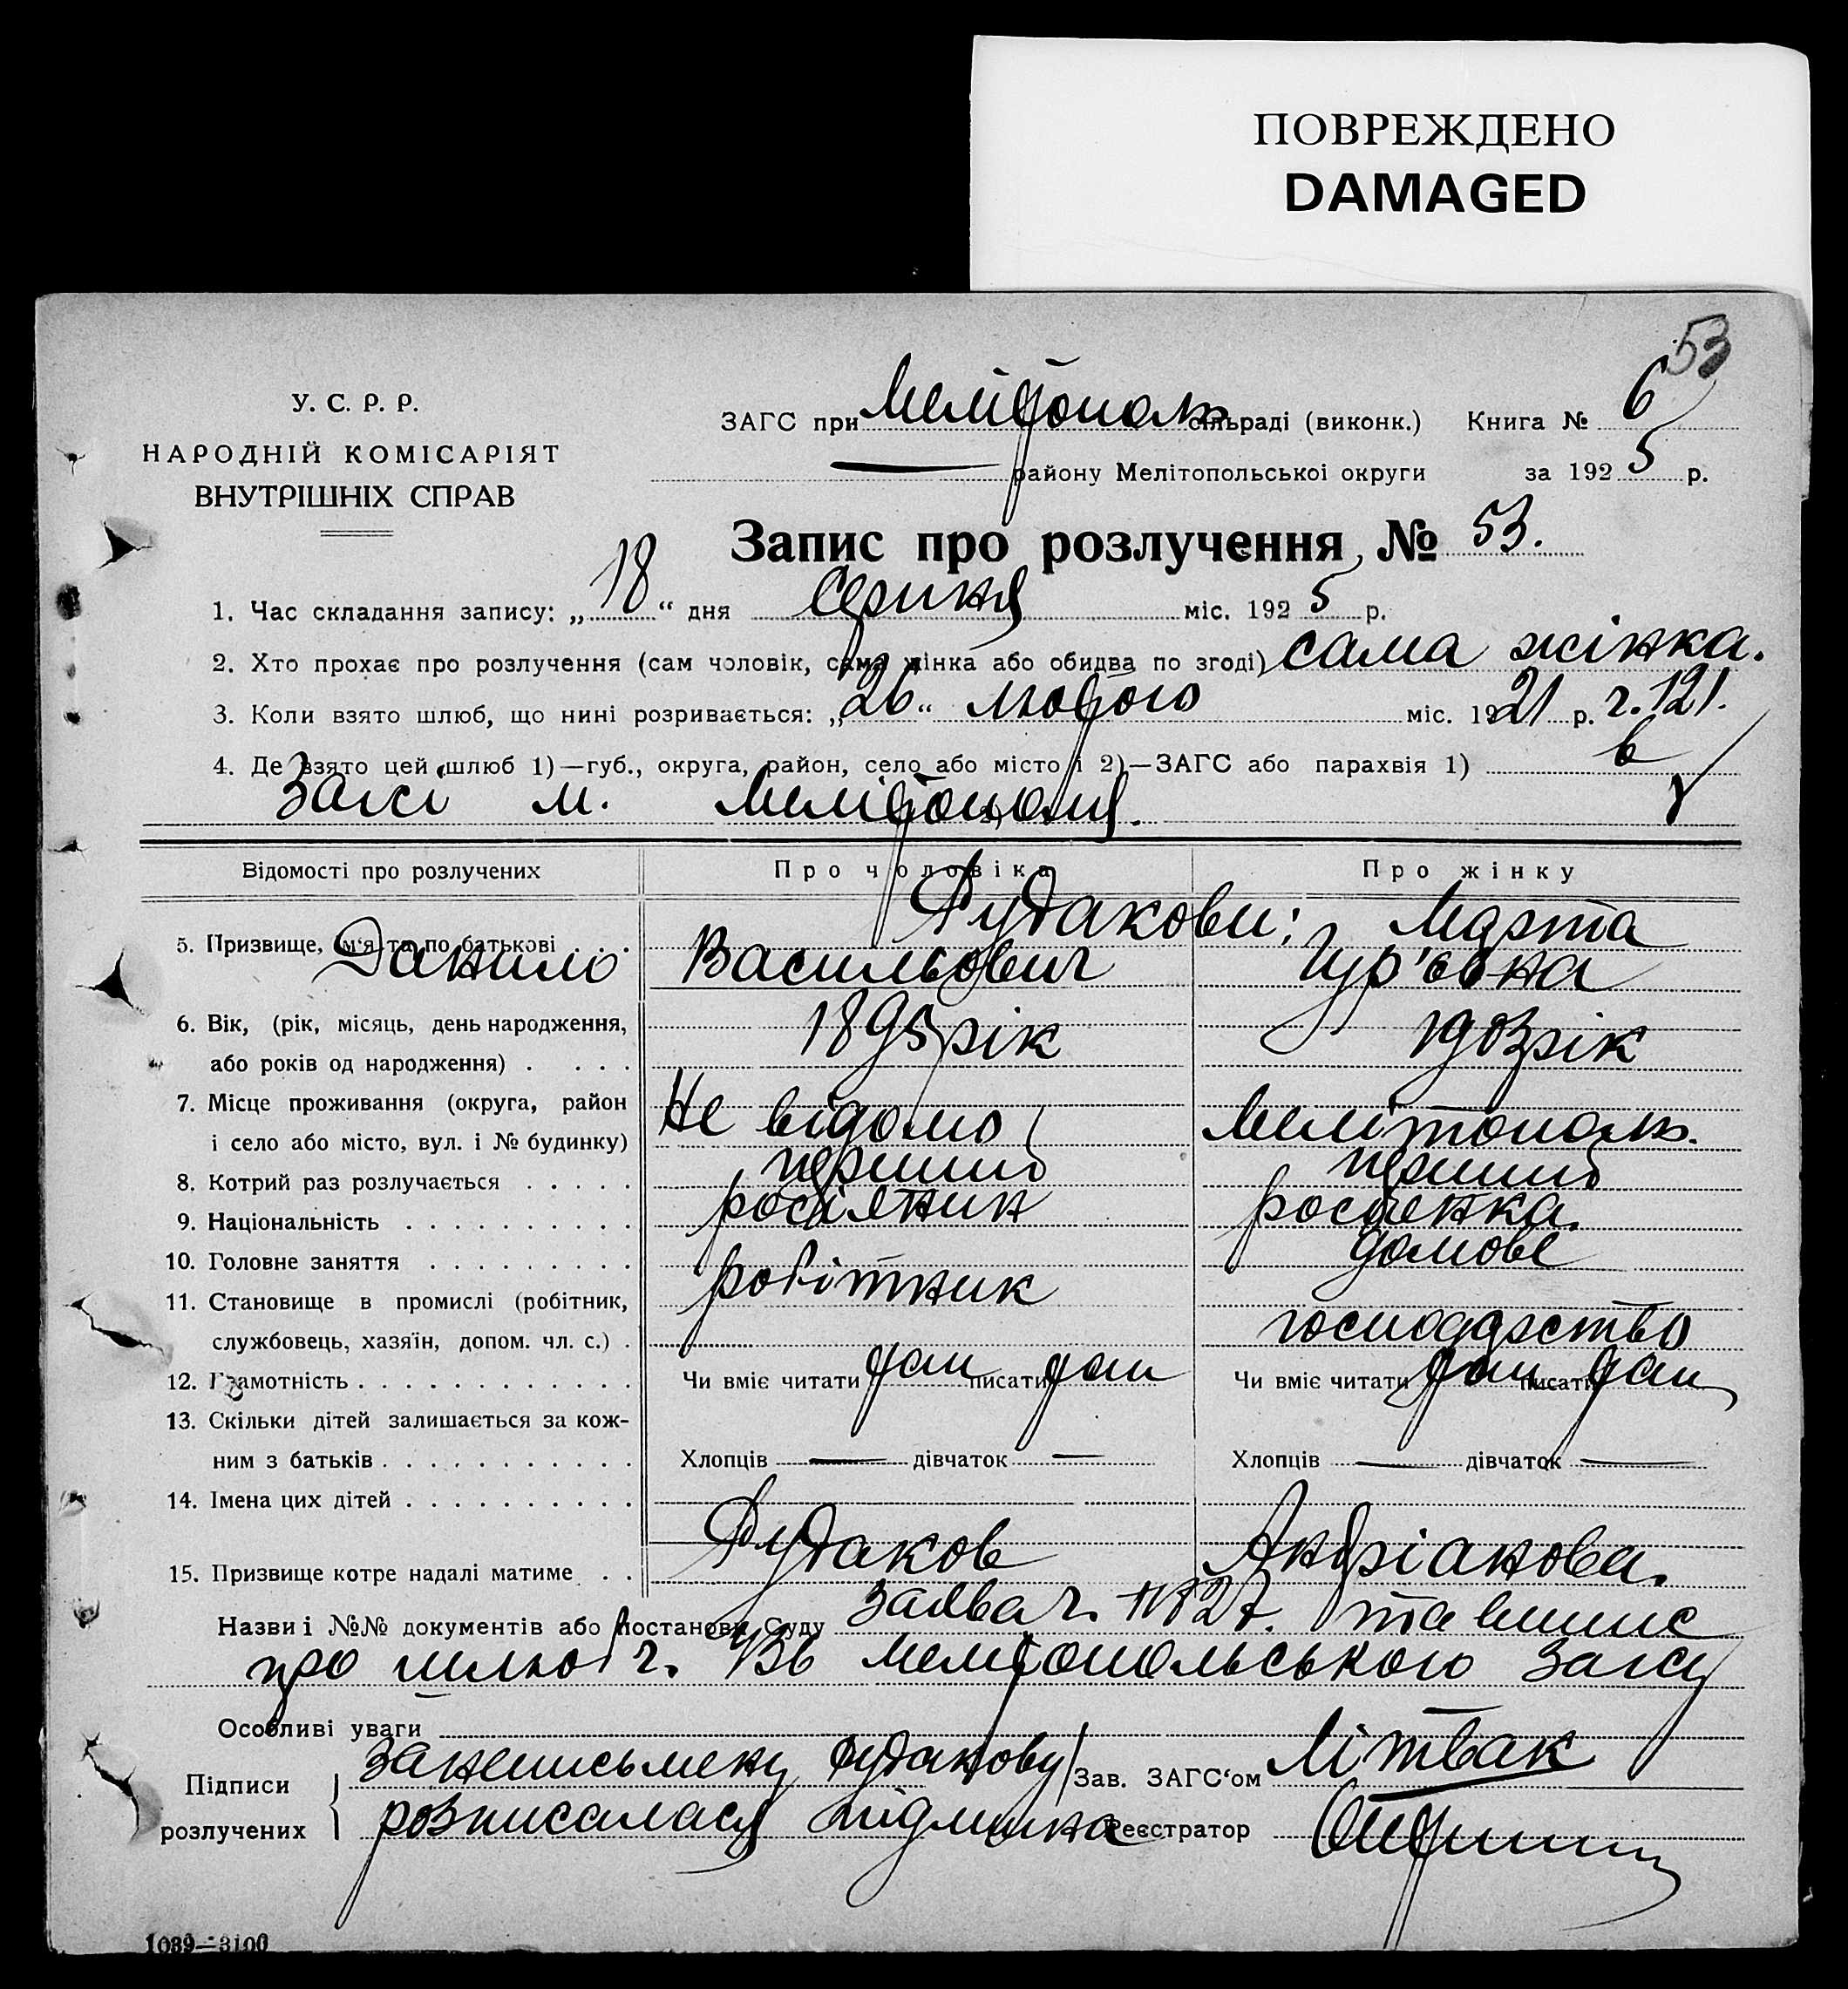 ПОВРЕЖДЕНО
DAMAGED
53
У. С. Р. Р.
НАРОДНІЙ КОМІСАРІЯТ
ВНУТРІШНІХ СПРАВ
ЗАГС при Мелітополь сільраді (виконк.) Книга № 6
— району Мелітопольськоі округи за 1925 р.
Запис про розлучення № 53.
1. Час складання запису: „18“ дня Серпня міс. 1925 р.
2. Хто прохає про розлучення (сам чоловік, сама жінка або обидва по згоді) сама жінка.
3. Коли взято шлюб, що нині розривається: „26“ лютого міс. 1921 р. ч. 121.
4. Де взято цей шлюб 1)—губ., округа, район, село або місто і 2)—ЗАГС або парахвія 1) в
Загсі м. Мелітополя.
Відомості про розлучених Про чоловіка Про жінку
5. Призвище, ім‘я та по батькові . . . Рудакови: Марта
Данило Васильович Гур'євна
6. Вік, (рік, місяць, день народження, 1895 рік 1903 рік
або років од народження) . . . .
7. Місце проживання (округа, район Не відомо Мелітополь.
і село або місто, вул. і № будинку)
8. Котрий раз розлучається . . . . . перший перший
9. Національність . . . . . . . . . . росіянин росіенка.
10. Головне заняття . . . . . . . . . домове
11. Становище в промислі (робітник, робітник
службовець, хазяїн, допом. чл. с.) . господарство
12. Грамотність . . . . . . . . . . . . Чи вміє читати так писати так Чи вміє читати так писати так
13. Скільки дітей залишається за кож-
ним з батьків . . . . . . . . . . . Хлопців — дівчаток — Хлопців — дівчаток —
14. Імена цих дітей . . . . . . . . . .
15. Призвище котре надалі матиме . . Рудаков Андріанова.
Назви і №№ документів або постанови Суду заява ч. та випис
про шлюб ч. Мелітопольського Загсу
Особливі уваги
Підписи розлучених за неписьмену Рудакову Зав. ЗАГС‘ом Літвак
розписалася Реєстратор
1039—3100